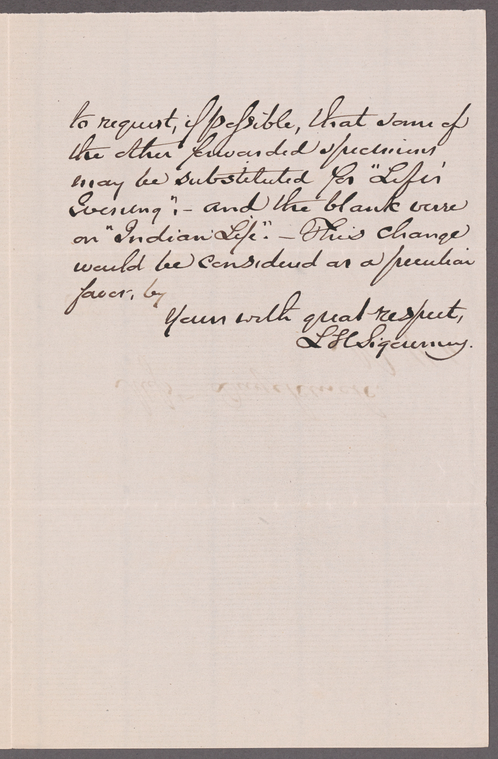 to request, if possible, that some of
the other forwarded specimens
may be substituted for "Life's
Evening":- and the blank verse
on "Indian Life". - This change
would be considered as a peculiar
favor, by
Yours with great respect,
L H Sigourney.